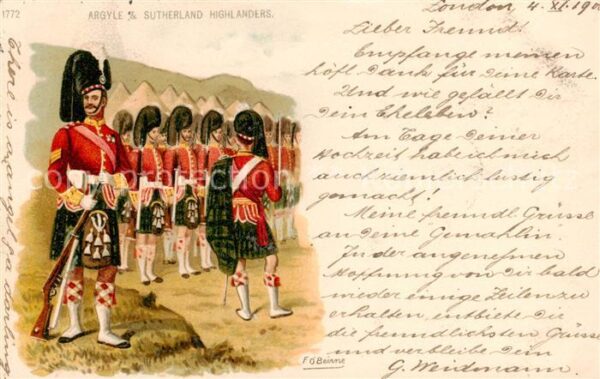 1772
ARGYLE & SUTHERLAND HIGHLANDERS.
London 4. XI. 190
Lieber Freund!
Empfange meinen
höfl. Dank für deine Karte.
Und wie gefällt dir
dein Eheleben?
Am Tage deiner
Hochzeit habe ich mich
auch ziemlich lustig
gemacht!
Meine freundl. Grüsse
an deine Gemahlin.
In der angenehmen
Hoffnung von dir bald
wieder einige Zeilen zu
erhalten, entbiete dir
die freundlichsten Grüsse
und verbleibe dein
G. Weidmann.
There is an
F O'Beirne